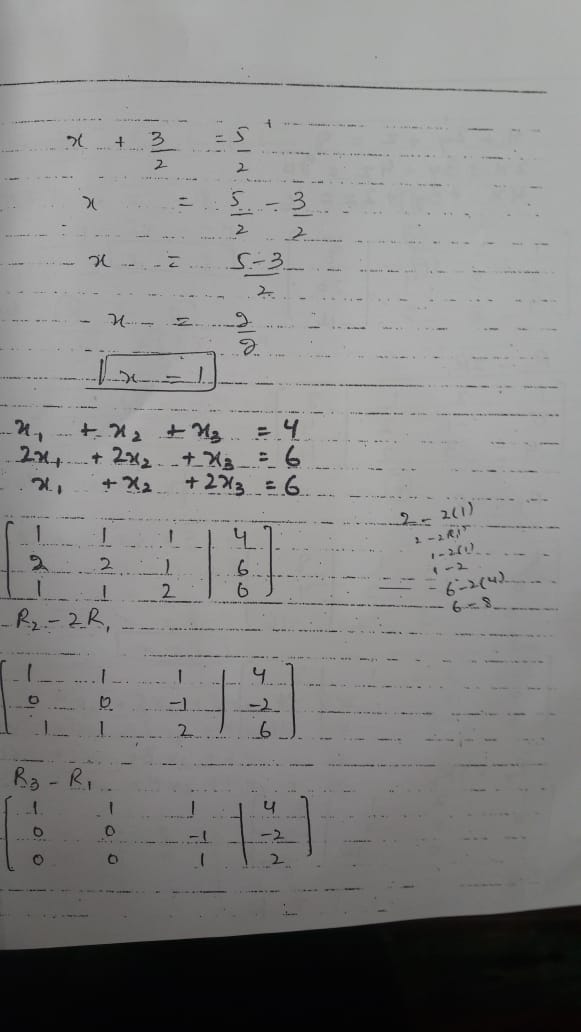 x + 3/2 = 5/2
x = 5/2 - 3/2
x = 5-3/2
x = 2/2
x = 1
x₁ + x₂ + x₃ = 4
2x₁ + 2x₂ + x₃ = 6
x₁ + x₂ + 2x₃ = 6
2 - 2(1)
2 - 2R1
1 - 2(1)
1 - 2
= 6 - 2(4)
6 = 8
[ 1 1 1 | 4 ]
[ 2 2 1 | 6 ]
[ 1 1 2 | 6 ]
R₂ - 2R₁
[ 1 1 1 | 4 ]
[ 0 0 -1 | -2 ]
[ 1 1 2 | 6 ]
R₃ - R₁
[ 1 1 1 | 4 ]
[ 0 0 -1 | -2 ]
[ 0 0 1 | 2 ]